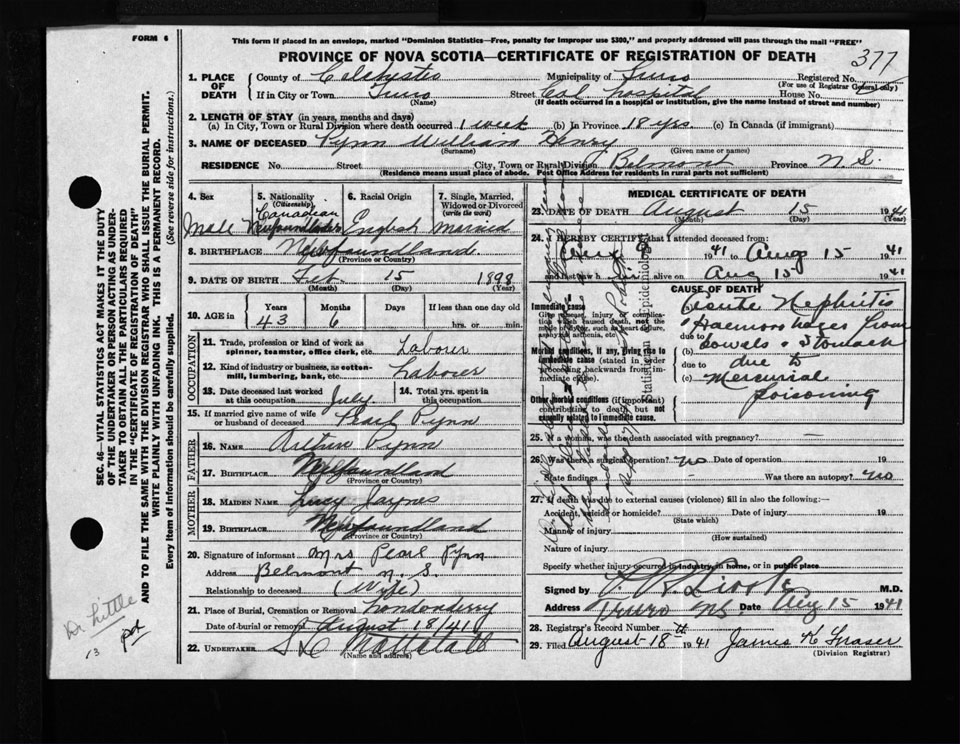 FORM 6
This form if placed in an envelope, marked "Dominion Statistics—Free, penalty for improper use $300," and properly addressed will pass through the mail "FREE"
PROVINCE OF NOVA SCOTIA—CERTIFICATE OF REGISTRATION OF DEATH
377
1. PLACE OF DEATH
County of Colchester Municipality of Truro Registered No.
(For use of Registrar General only)
If in City or Town Truro Street Col. Hospital House No.
(Name) (If death occurred in a hospital or institution, give the name instead of street and number)
2. LENGTH OF STAY (in years, months and days)
(a) In City, Town or Rural Division where death occurred 1 week (b) In Province 18 yrs. (c) In Canada (if immigrant)
3. NAME OF DECEASED Pynn William Henry
(Surname) (Given name or names)
RESIDENCE No. Street City, Town or Rural Division Belmont Province N.S.
(Residence means usual place of abode. Post Office Address for residents in rural parts not sufficient)
4. Sex
Male
5. Nationality
(Citizenship)
Canadian
Newfoundlander
6. Racial Origin
English
7. Single, Married, Widowed or Divorced
(write the word)
Married
8. BIRTHPLACE Newfoundland
(Province or Country)
9. DATE OF BIRTH Feb. 15 1898
(Month) (Day) (Year)
10. AGE in Years Months If less than one day old
43 6 hrs. or min.
OCCUPATION
11. Trade, profession or kind of work as spinner, teamster, office clerk, etc. Labourer
12. Kind of industry or business, as cotton-mill, lumbering, bank, etc. Labourer
13. Date deceased last worked at this occupation July
14. Total yrs. spent in this occupation
15. If married give name of wife or husband of deceased Pearl Pynn
FATHER
16. NAME Pynn
17. BIRTHPLACE Newfoundland
(Province or Country)
MOTHER
18. MAIDEN NAME Lucy Jaynes
19. BIRTHPLACE Newfoundland
(Province or Country)
20. Signature of informant Mrs Pearl Pynn
Address Belmont N.S.
Relationship to deceased (Wife)
21. Place of Burial, Cremation or Removal Londonderry
Date of burial or removal August 18/41
22. UNDERTAKER
(Name and Address)
MEDICAL CERTIFICATE OF DEATH
23. DATE OF DEATH August 15 1941
(Month) (Day) (Year)
24. I HEREBY CERTIFY that I attended deceased from:
41 to Aug 15 1941
and last saw h alive on Aug 15 1941
CAUSE OF DEATH
Immediate cause
Give disease, injury or complication which caused death, not the mode of dying, such as heart failure, asphyxia, asthenia, etc.
Morbid conditions, if any, giving rise to immediate cause (stated in order proceeding backwards from immediate cause).
Other morbid conditions (if important) contributing to death but not causally related to immediate cause.
Acute Nephritis
due to Haemorrhages from
(b) bowels & Stomach
due to
(c) Mercurial
poisoning
25. If a woman, was the death associated with pregnancy? —
26. Was there a surgical operation? no Date of operation 19
State findings Was there an autopsy? no
27. If death was due to external causes (violence) fill in also the following:—
Accident, suicide or homicide? Date of injury 19
(State which)
Manner of injury
(How sustained)
Nature of injury
Specify whether injury occurred in industry, in home, or in public place
Signed by M.D.
Address Truro N.S. Date Aug 15 1941
28. Registrar's Record Number
29. Filed August 18th 1941 James K Fraser
(Division Registrar)
SEC. 46—VITAL STATISTICS ACT MAKES IT THE DUTY
OF THE UNDERTAKER OR PERSON ACTING AS UNDER-
TAKER TO OBTAIN ALL THE PARTICULARS REQUIRED
IN THE "CERTIFICATE OF REGISTRATION OF DEATH"
AND TO FILE THE SAME WITH THE DIVISION REGISTRAR WHO SHALL ISSUE THE BURIAL PERMIT.
WRITE PLAINLY WITH UNFADING INK. THIS IS A PERMANENT RECORD.
Every item of Information should be carefully supplied. (See reverse side for instructions.)
Dr. Little